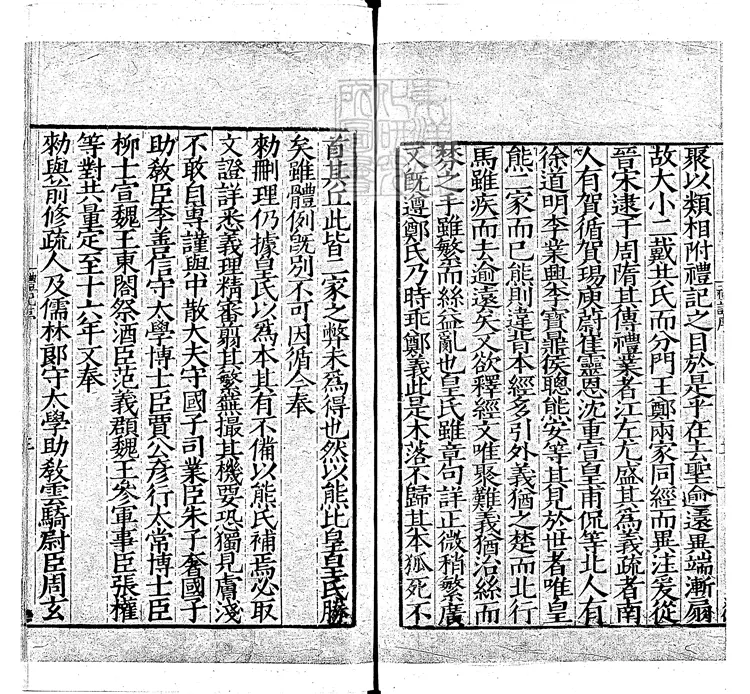 聚以類相附禮記之目於是乎在去聖逾遠異端漸扇
故大小二戴共氏而分門王鄭兩家同經而異注爰從
晉宋逮于周隋其傳禮業者江左尤盛其爲義疏者南
人有賀循賀瑒庾蔚崔靈恩沈重宣皇甫侃等北人有
徐道明李業興李寶鼎侯聰熊安等其見於世者唯皇
熊二家而已熊則違背本經多引外義猶之楚而北行
馬雖疾而去逾遠矣又欲釋經文唯聚難義猶治絲而
棼之手雖繁而絲益亂也皇氏雖章句詳正微稍繁廣
又旣遵鄭氏乃時乖鄭義此是木落不歸其本狐死不
首其丘此皆二家之弊未爲得也然以熊比皇皇氏勝
矣雖體例旣別不可因循今奉
勑刪理仍據皇氏以爲本其有不備以熊氏補焉必取
文證詳悉義理精審翦其繁蕪撮其機要恐獨見膚淺
不敢自專謹與中散大夫守國子司業臣朱子奢國子
助敎臣李善信守太學博士臣賈公彥行太常博士臣
柳士宣魏王東閤祭酒臣范義頵魏王參軍事臣張權
等對共量定至十六年又奉
勑與前修疏人及儒林郎守太學助敎雲騎尉臣周玄